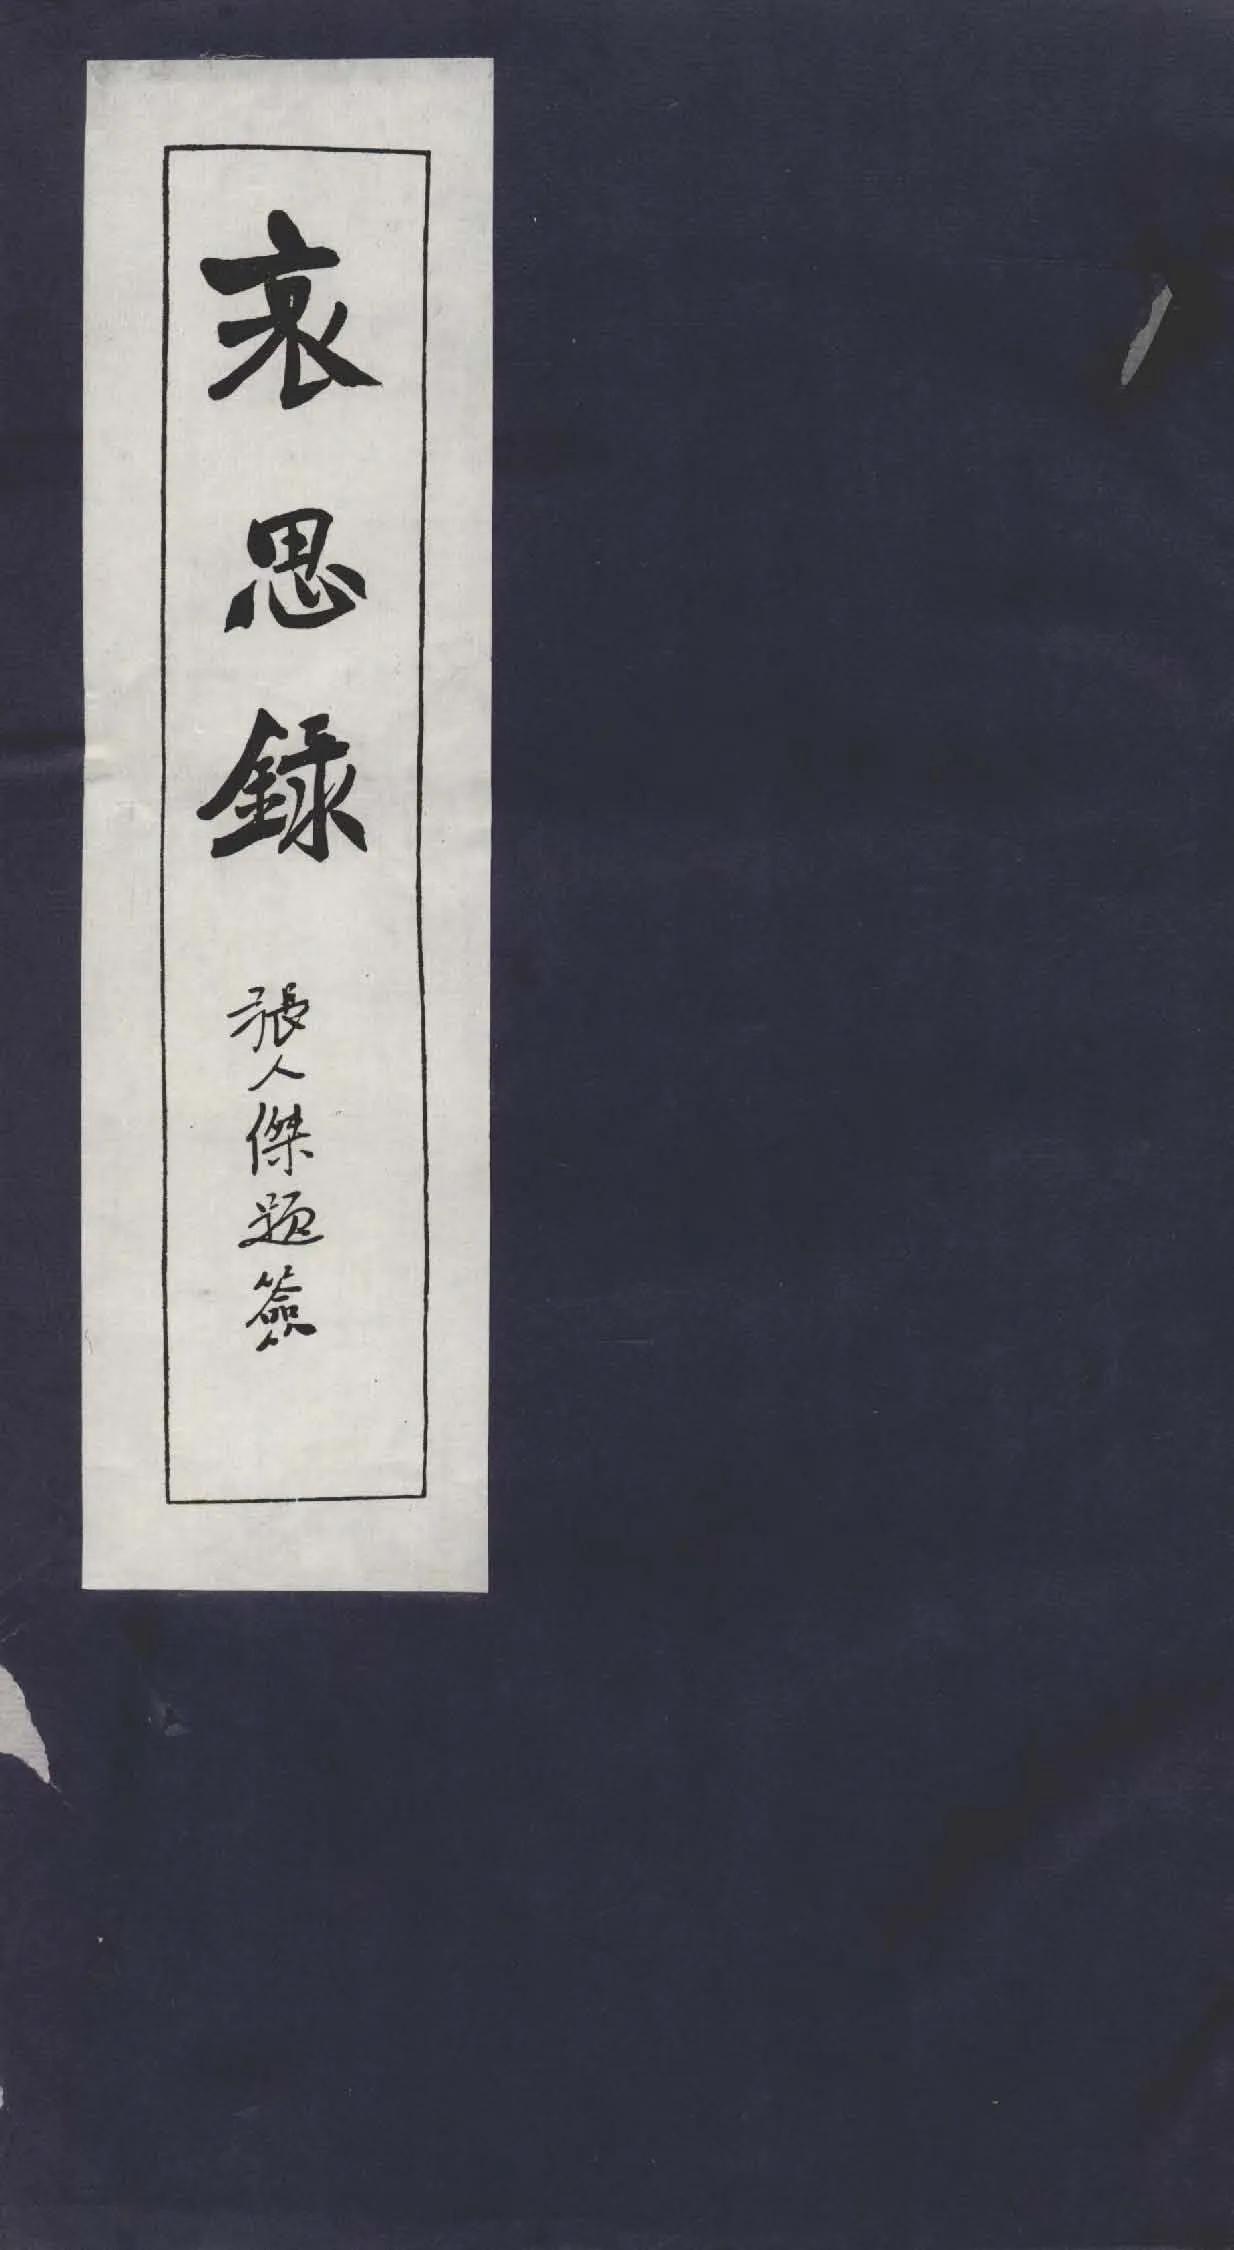 哀思錄
張人傑題簽